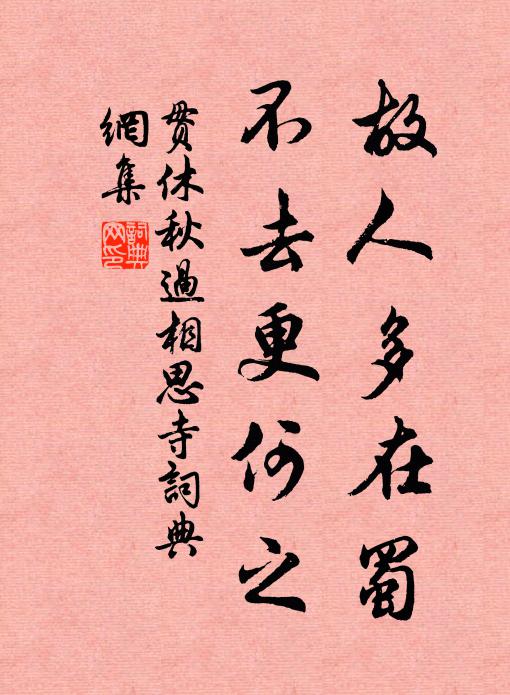 故人多在蜀
不去更何之
贯休秋過相思寺詞典
網集
詞典
网印